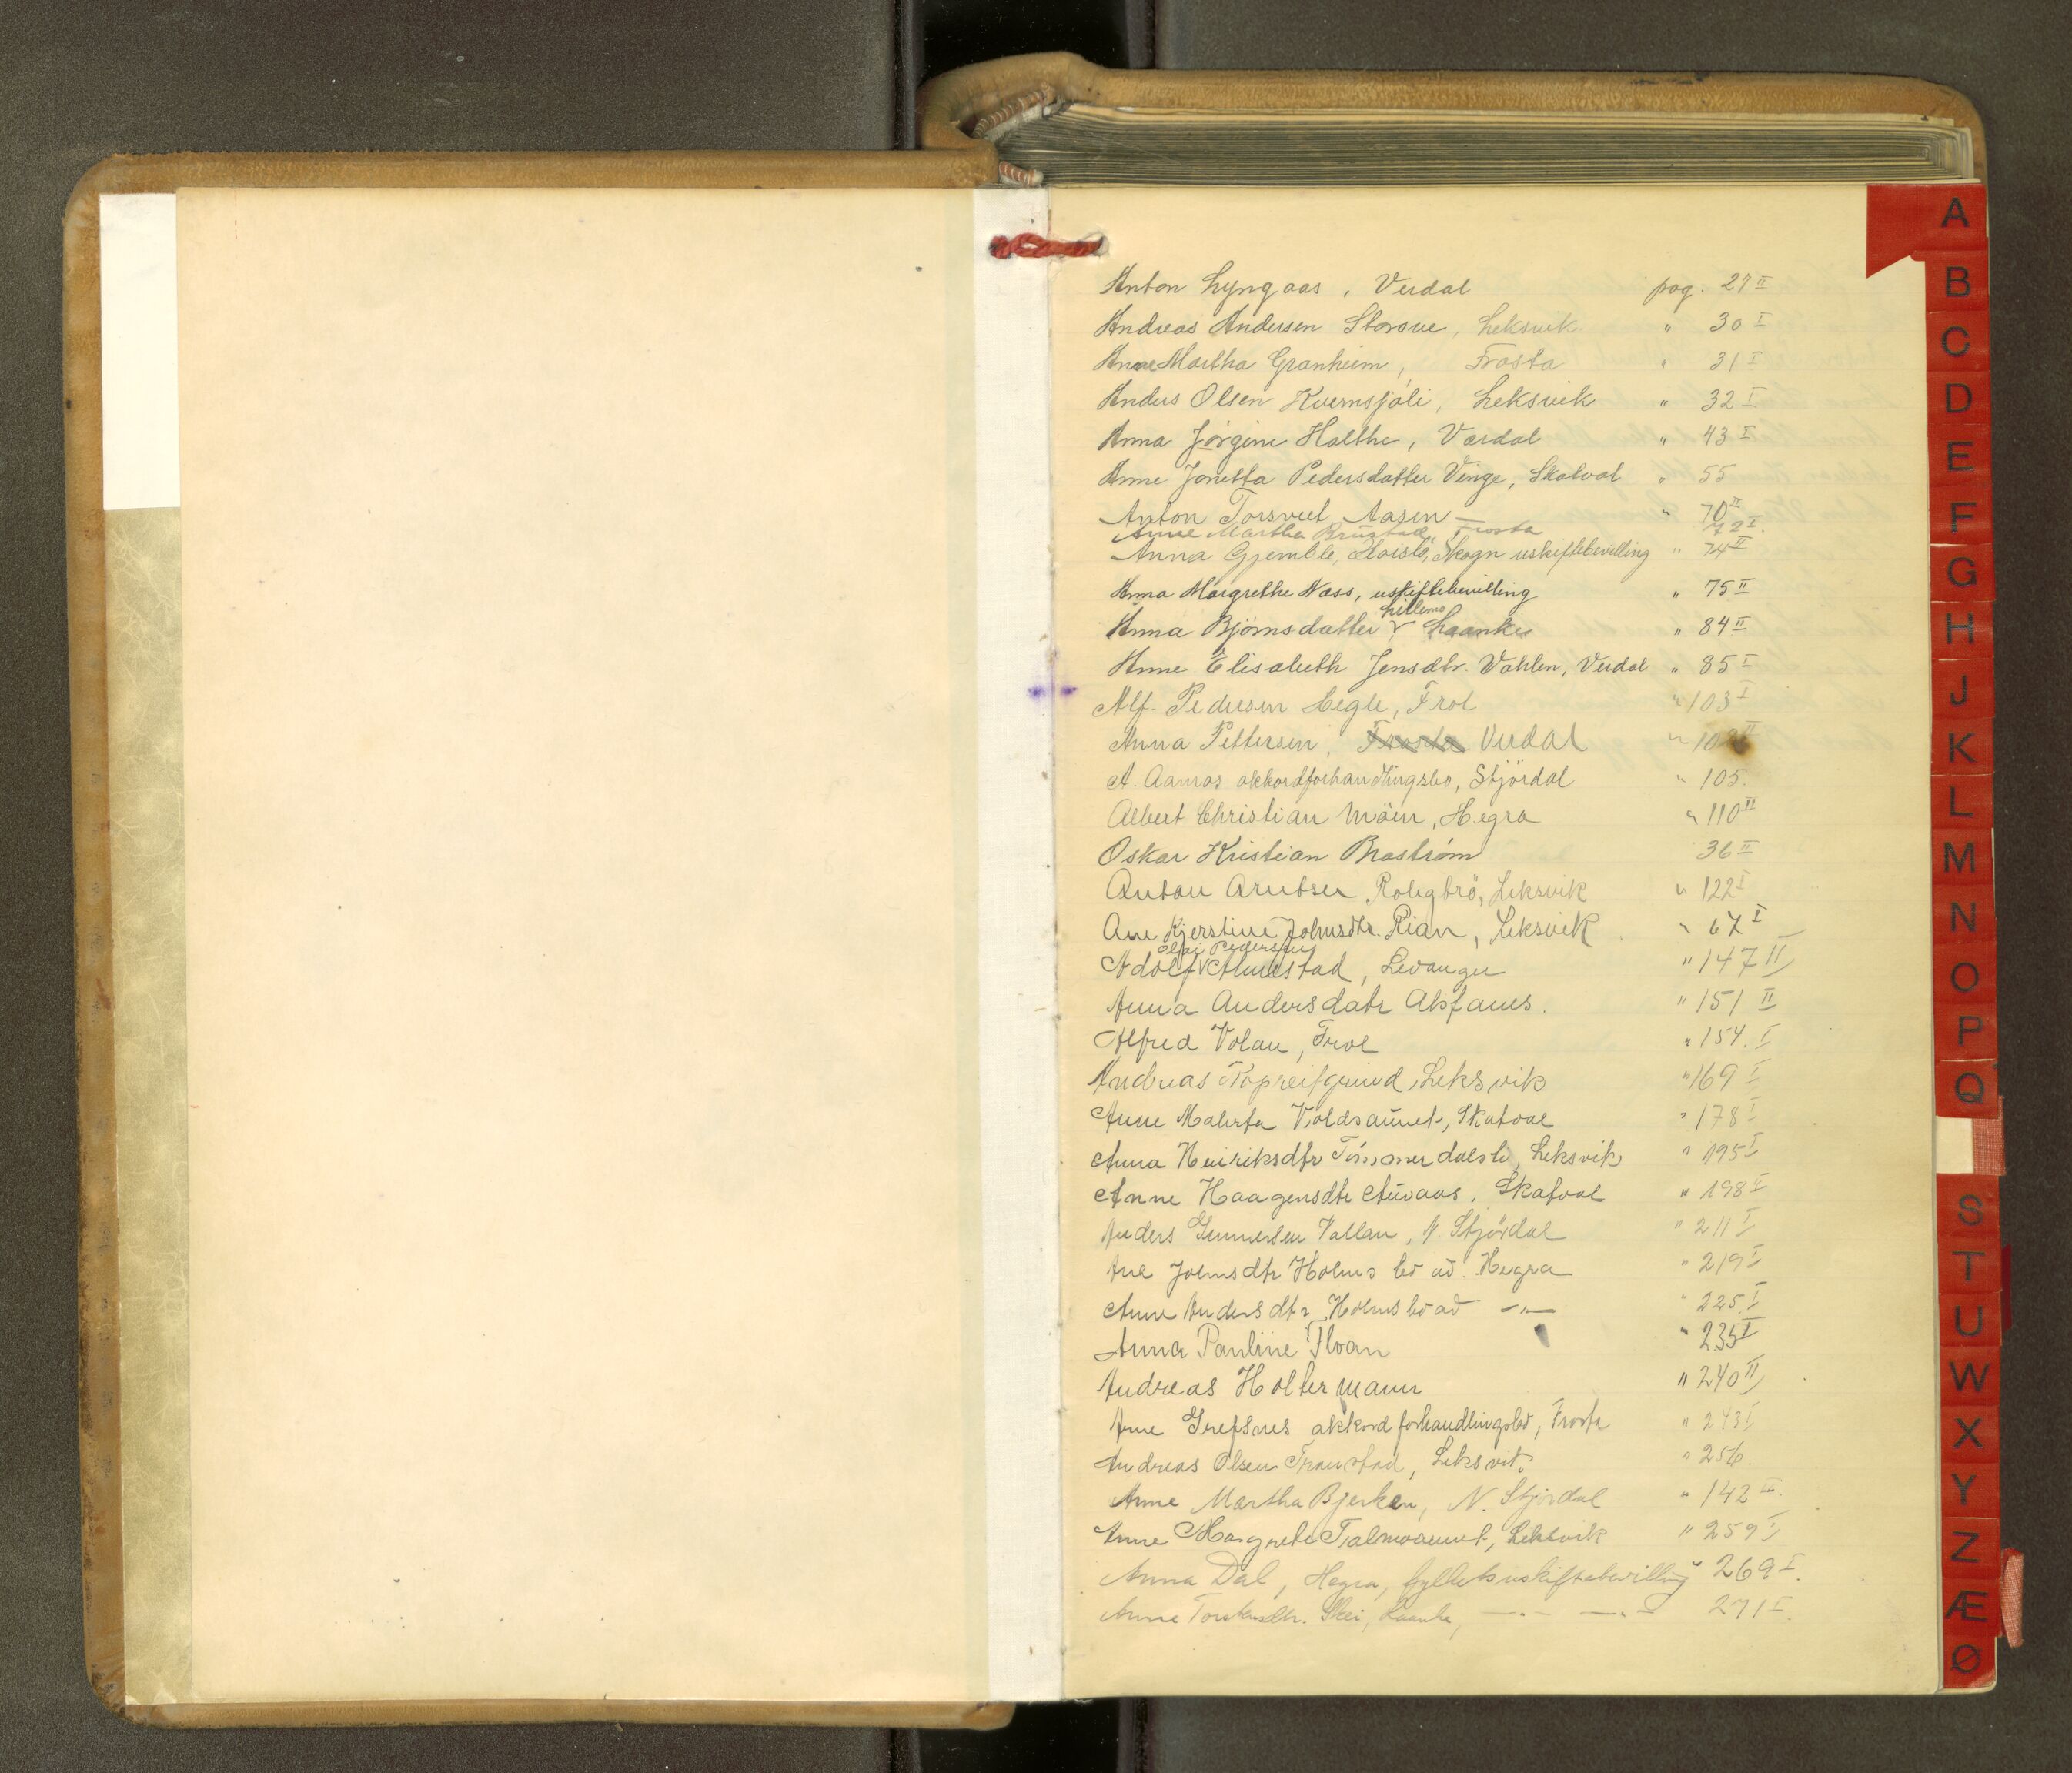 Anton Lyngaas, Verdal pag. 27 II
Andreas Andersen Storsve, Leksvik " 30 I
Anne Martha Granheim, Frosta " 31 I
Anders Olsen Kvernsjøli, Leksvik " 32 I
Anna Jørgine Halthe, Værdal " 43 I
Anne Jonetta Pedersdatter Vinge, Skatval " 55
Anton Torsveet, Aasen — " 70 II
Anne Martha Brustad, Frosta 72 I.
Anna Gjemble, Skogn uskiftebevilling " 74 II
Anna Margrethe Næss, uskiftebevilling " 75 II
Lillemo
Anna Bjørnsdatter v Laanke " 84 II
Anne Elisabeth Jensdtr. Vohlen, Verdal " 85 I
Alf Pedersen Hegle, Frol " 103 I
Anna Pettersen, Frosta Verdal "
A. Aamos akkordforhandlingsbo, Stjördal " 105.
Albert Christian Möen, Hegra " 110 II
Oskar Kristian Brostrøm 36 II
Anton Arntsen Rolegtrö, Leksvik " 122 I
Ane Kjerstine Johnsdtr. Rian, Leksvik " 67 I
Olai Pedersen
Adolf v Almestad, Levanger " 147 II
Anna Andersdatr Alsfanes. " 151 II
Alfred Volan, Frol " 154. I
Andreas, Leksvik " 169 I
Anne Malerta Voldsaunet, Skatval " 178 I
Anna Henriksdtr Tömmerdalsli, Leksvik " 195 I
Anne Haagensdtr Auvaas, Skatval " 198 II
Anders Gunnersen Vallan, N. Stjördal " 211 I
Ane Johnsdtr Holms bo ad. Hegra " 219 I
Anne Andersdtr Holmsboad —"— " 225 I
Anna Pauline Floan " 235 I
Andreas Holtermann " 240 II
Arne Grefsnes akkordforhandlingsbo, Frosta " 243 I
Andreas Olsen, Leksvik " 256.
Anne Martha Bjerkan, N. Stjørdal " 142 II
Anne Margrete, Leksvik " 259 I
Anna Dal, Hegra, fylkets uskiftebevilling " 269 I.
Anne Torstensdtr. Skei, Laanke, —"— —"— 271 I.
A
B
C
D
E
F
G
H
J
K
L
M
N
O
P
Q
S
T
U
W
X
Y
Z
Æ
Ø